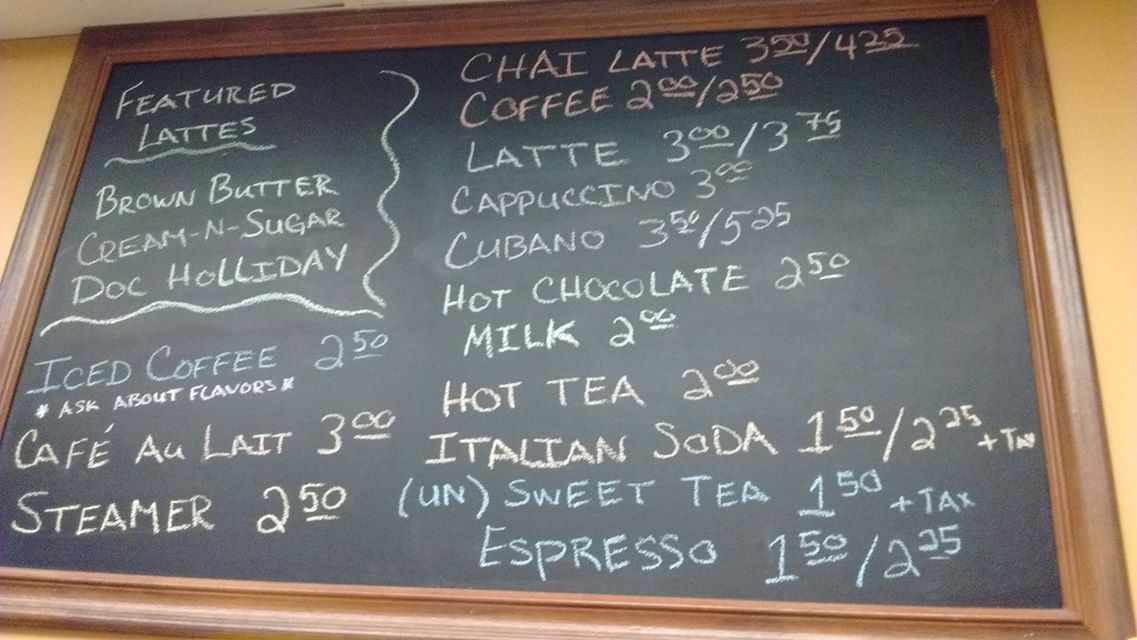 FEATURED
LATTES
BROWN BUTTER
CREAM-N-SUGAR
DOC HOLLIDAY
ICED COFFEE 2 50
* ASK ABOUT FLAVORS *
CAFÉ AU LAIT 3 00
STEAMER 2 50
CHAI LATTE 3 50/4 25
COFFEE 2 00/2 50
LATTE 3 00/3 75
CAPPUCCINO 3 00
CUBANO 3 50/5 25
HOT CHOCOLATE 2 50
MILK 2 00
HOT TEA 2 00
ITALIAN SODA 1 50/2 25 + TAX
(UN) SWEET TEA 1 50 + TAX
ESPRESSO 1 50/2 25